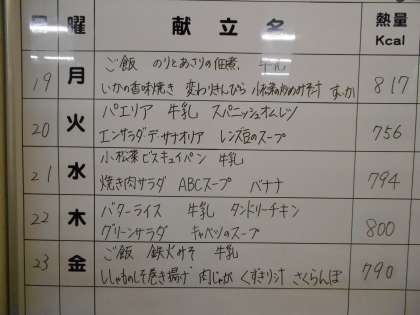 日 曜 献立名 熱量
Kcal
ご飯 のりとあさりの佃煮 牛乳
19 月 いかの香味焼き 変わりきんぴら 小松菜の炒めみそ汁 817
パエリア 牛乳 スパニッシュオムレツ
20 火 エンサラダデサナオリア レンズ豆のスープ 756
小松菜ビスキュイパン 牛乳
21 水 焼き肉サラダ ABCスープ バナナ 794
バターライス 牛乳 タンドリーチキン
22 木 グリーンサラダ キャベツのスープ 800
ご飯 鉄火みそ 牛乳
23 金 ししゃものしそ巻き揚げ 肉じゃが くずきり汁 さくらんぼ 790